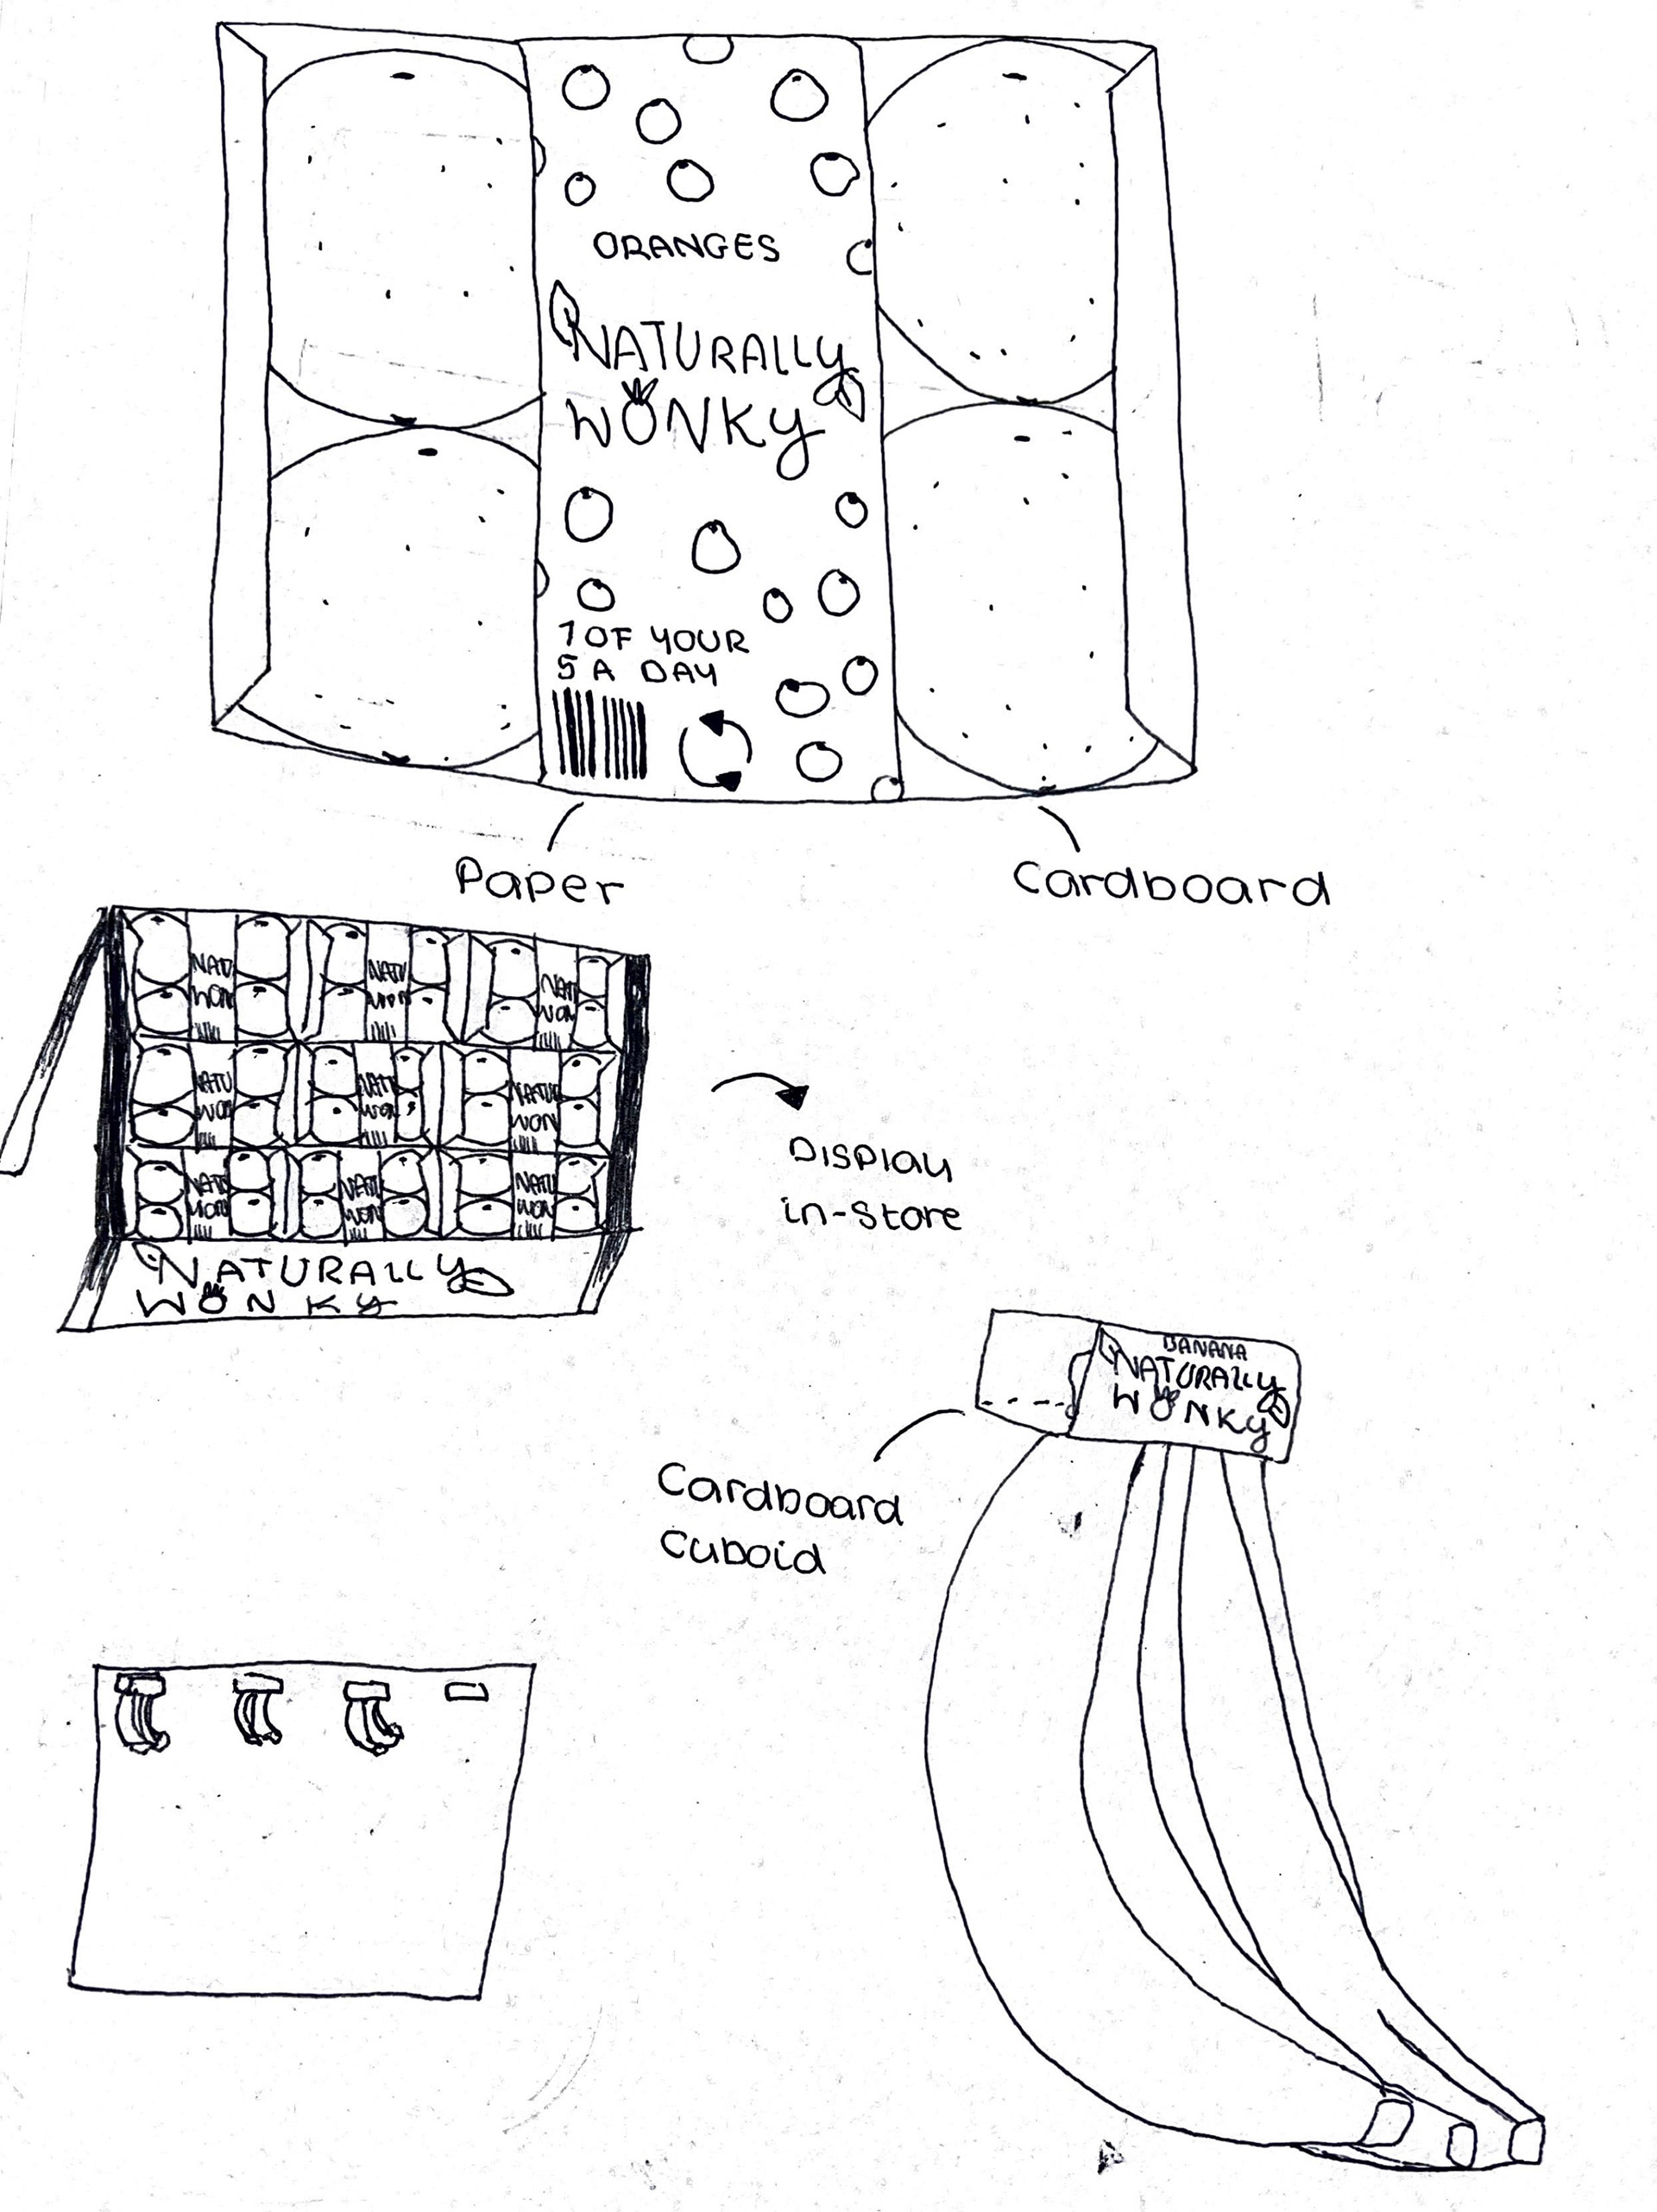 ORANGES
NATURALLY
WONKY
1 OF YOUR
5 A DAY
Paper
Cardboard
NATU
WON
NATU
WON
NAT
WON
NATU
WON
NATU
WON
NATUR
WON
NATU
WON
NATU
WON
NATU
WON
NATURALLY
WONKY
DISPLAY
in-store
BANANA
NATURALLY
WONKY
Cardboard
Cuboid